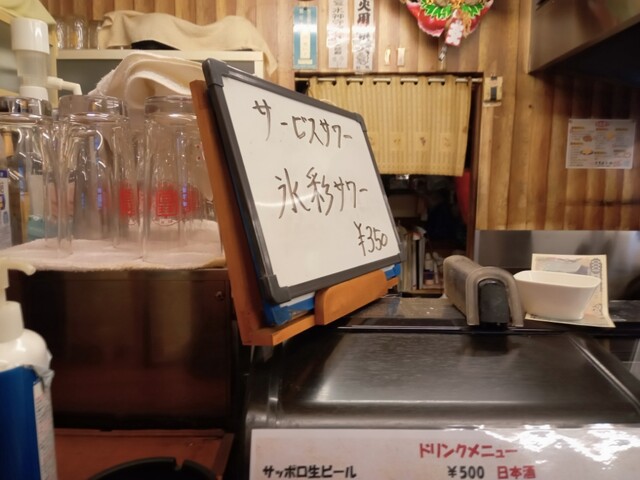 サービスサワー
氷彩サワー
¥350
ドリンクメニュー
サッポロ生ビール ¥500 日本酒